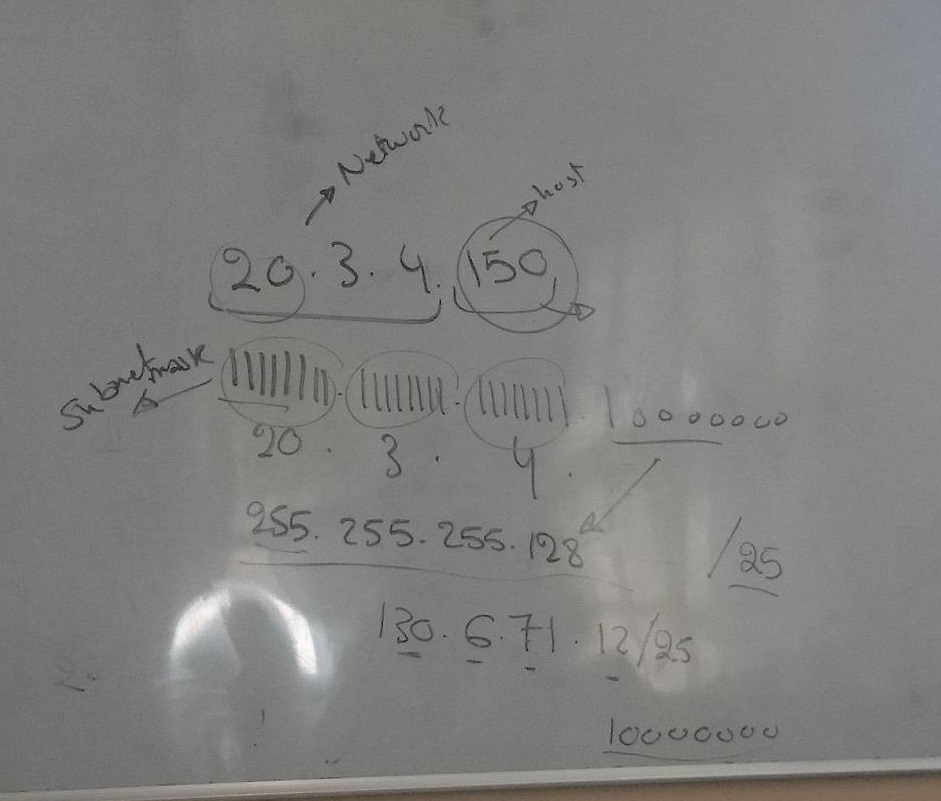 Network
host
20.3.4.150
Subnetmask
11111111.11111111.11111111.10000000
20.3.4.
255.255.255.128
/25
130.6.71.12/25
10000000